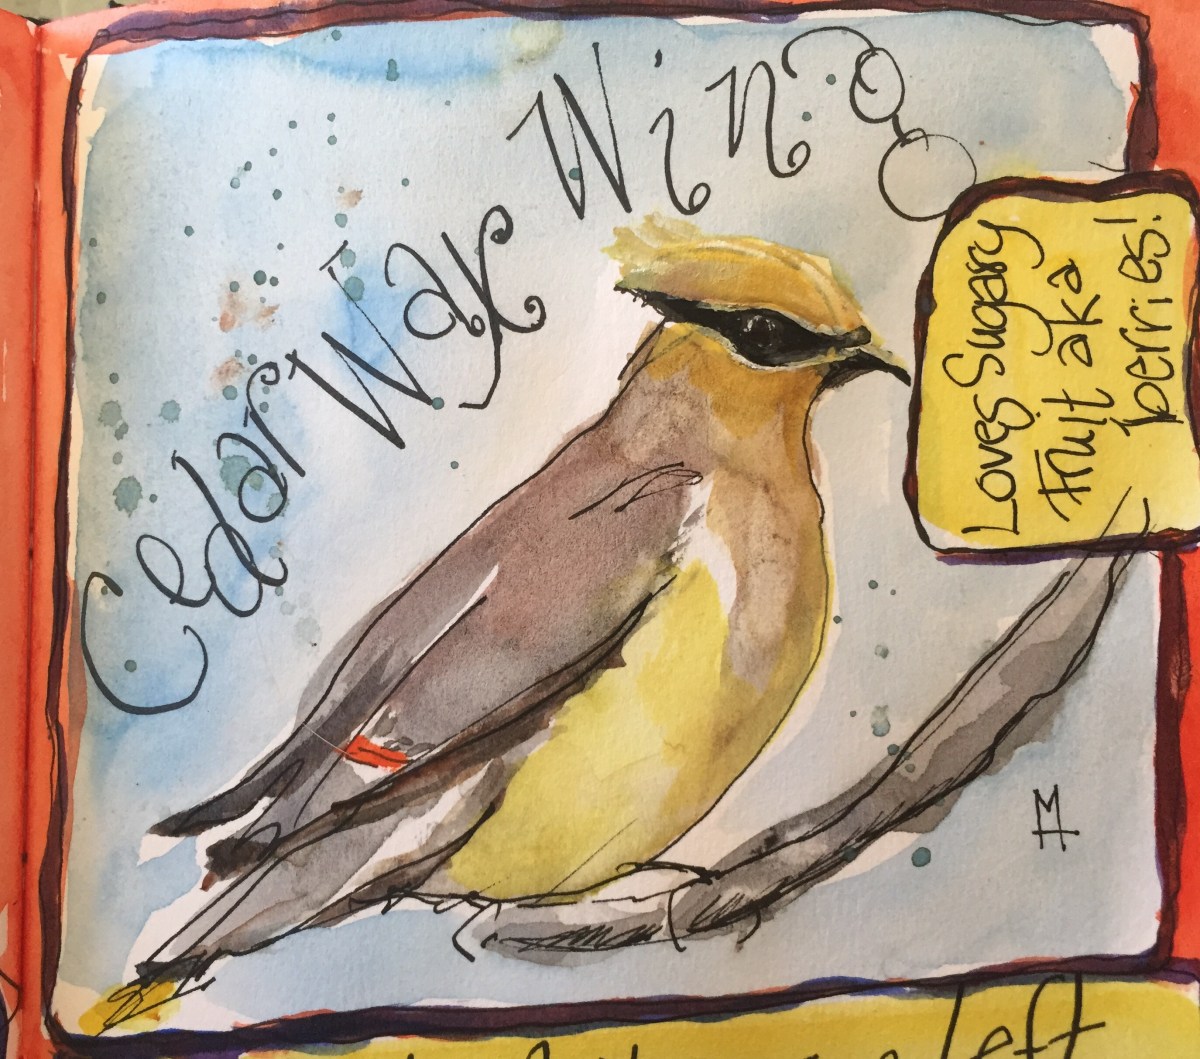 Cedar Wax Wing
Loves Sugary
Fruit aka
berries!
left